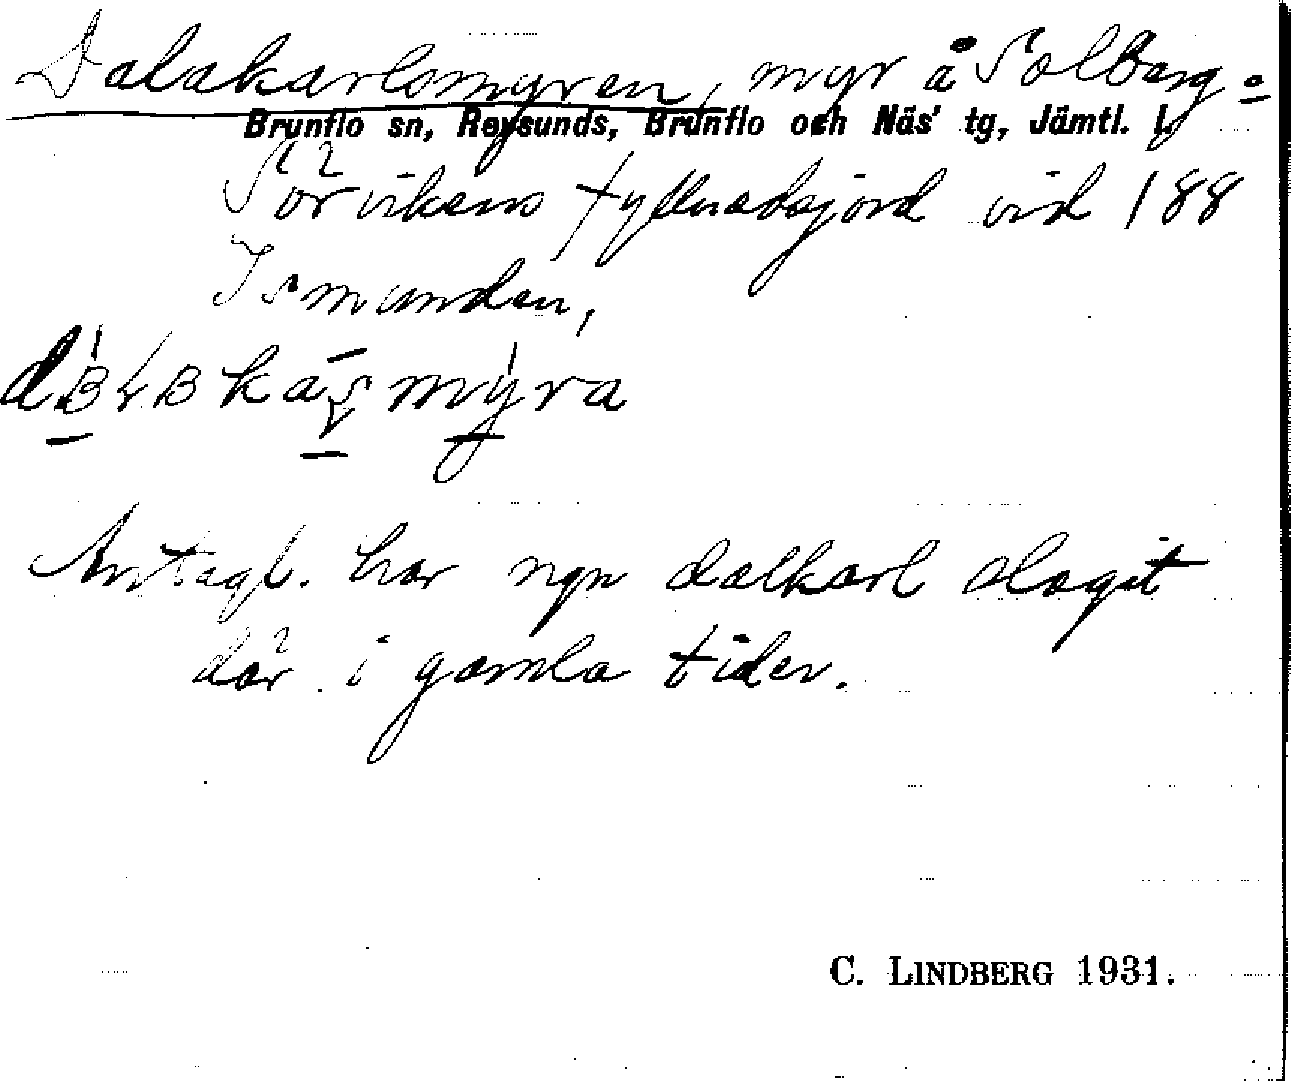 Dalakarlsmyren, myr å Solberg-
Brunflo sn, Revsunds, Brunflo och Näs' tg, Jämtl. l.
Sörvikens fyllnadsjord vid 188
Ismunden,
Antagl. har ngn dalkarl slagit
där i gamla tider.
C. LINDBERG 1931.